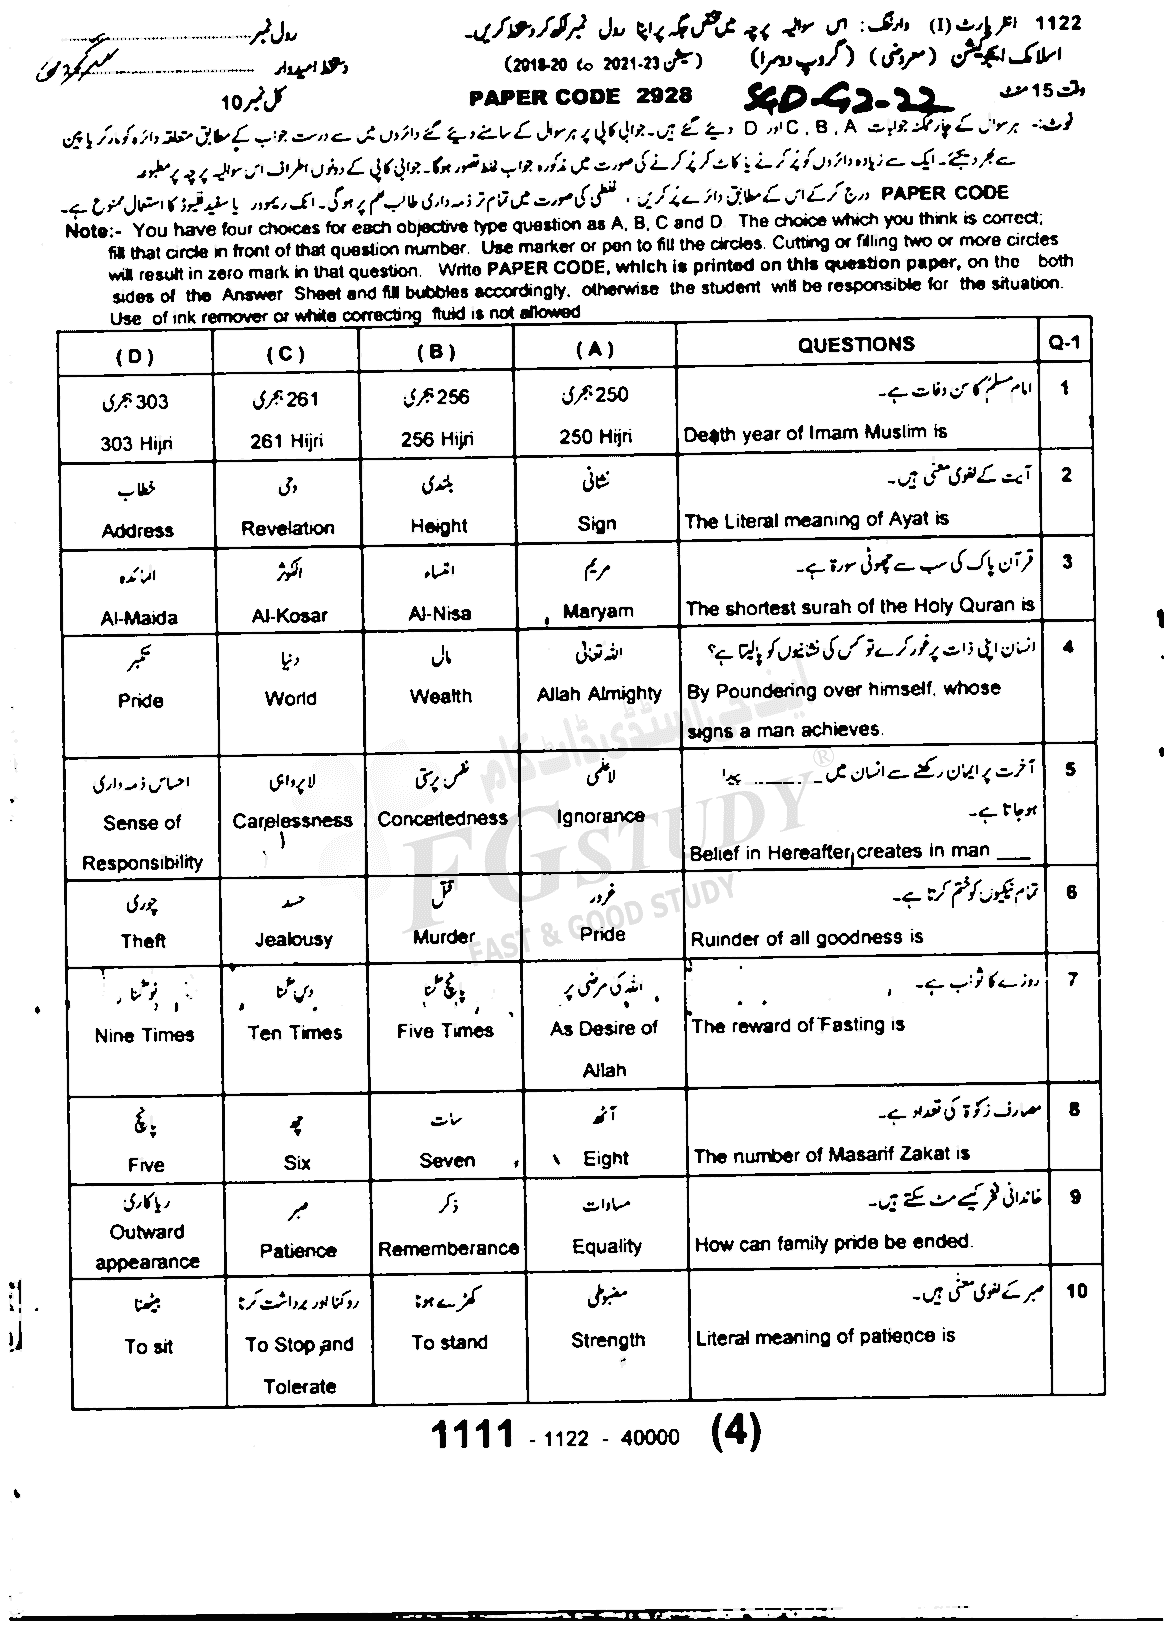 1122 انٹر پارٹ (I) وارننگ: اس سوالیہ پرچہ میں مختص جگہ پر اپنا رول نمبر لکھ کر دستخط کریں۔ رول نمبر
اسلامک ایجوکیشن (معروضی) (گروپ دوسرا) (سیشن 2021-23 to 2018-20) دستخط امیدوار
وقت 15 منٹ SGD-G2-22 PAPER CODE 2928 کل نمبر 10
نوٹ:- ہر سوال کے چار ممکنہ جوابات A ، B ، C اور D دیئے گئے ہیں۔ جوابی کاپی پر ہر سوال کے سامنے دیئے گئے دائروں میں سے درست جواب کے مطابق متعلقہ دائرہ کو مارکر یا پین
سے بھر دیجئے۔ ایک سے زیادہ دائروں کو پُر کرنے یا کاٹ کر پُر کرنے کی صورت میں مذکورہ جواب غلط تصور ہوگا۔ جوابی کاپی کے دونوں اطراف اس سوالیہ پرچہ پر مطبوعہ
PAPER CODE درج کر کے اس کے مطابق دائرے پُر کریں، غلطی کی صورت میں تمام تر ذمہ داری طالب علم پر ہوگی۔ انک ریموور یا سفید فلیوڈ کا استعمال ممنوع ہے۔
Note:- You have four choices for each objective type question as A, B, C and D The choice which you think is correct;
fill that circle in front of that question number. Use marker or pen to fill the circles. Cutting or filling two or more circles
will result in zero mark in that question. Write PAPER CODE, which is printed on this question paper, on the both
sides of the Answer Sheet and fill bubbles accordingly, otherwise the student will be responsible for the situation.
Use of ink remover or white correcting fluid is not allowed
(D) (C) (B) (A) QUESTIONS Q-1
303 ہجری 261 ہجری 256 ہجری 250 ہجری امام مسلمؒ کا سن وفات ہے۔ 1
303 Hijri 261 Hijri 256 Hijri 250 Hijri Death year of Imam Muslim is
خطاب وحی بلندی نشانی آیت کے لغوی معنی ہیں۔ 2
Address Revelation Height Sign The Literal meaning of Ayat is
المائدہ الکوثر النساء مریم قرآن پاک کی سب سے چھوٹی سورۃ ہے۔ 3
Al-Maida Al-Kosar Al-Nisa Maryam The shortest surah of the Holy Quran is
تکبر دنیا مال اللہ تعالیٰ انسان اپنی ذات پر غور کرے تو کس کی نشانیوں کو پالیتا ہے؟ 4
Pride World Wealth Allah Almighty By Poundering over himself, whose
signs a man achieves.
احساس ذمہ داری لاپروای نفس پرستی لاعلمی آخرت پر ایمان رکھنے سے انسان میں ______ پیدا 5
ہوجاتا ہے۔
Sense of Carelessness Concertedness Ignorance
Responsibility Belief in Hereafter, creates in man ___
چوری حسد قتل غرور تمام نیکیوں کو ختم کرتا ہے۔ 6
Theft Jealousy Murder Pride Ruinder of all goodness is
نو گنا دس گنا پانچ گنا اللہ کی مرضی پر روزے کا ثواب ہے۔ 7
Nine Times Ten Times Five Times As Desire of The reward of Fasting is
Allah
پانچ چھ سات آٹھ مصارف زکوۃ کی تعداد ہے۔ 8
Five Six Seven Eight The number of Masarif Zakat is
ریاکاری صبر ذکر مساوات خاندانی فخر کیسے مٹ سکتے ہیں۔ 9
Outward Patience Rememberance Equality How can family pride be ended.
appearance
بیٹھنا روکنا اور برداشت کرنا کھڑے ہونا مضبوطی صبر کے لغوی معنی ہیں۔ 10
To sit To Stop and To stand Strength Literal meaning of patience is
Tolerate
1111 - 1122 - 40000 (4)
ایف جی سٹڈی ڈاٹ کام
FGSTUDY ®
FAST & GOOD STUDY